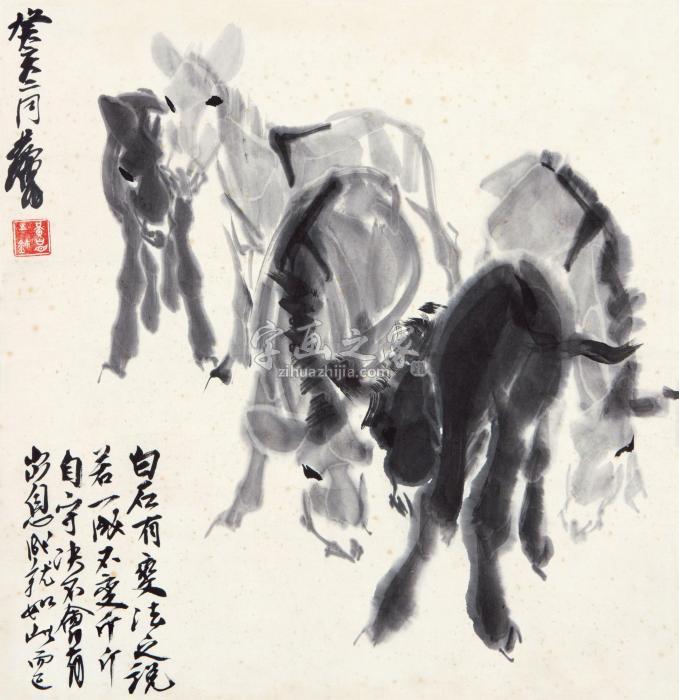 癸亥二月 黄胄
白石有變法之說
若一成不變斤斤
自守決不會有
出息成就如此而已
字画之家
zihuazhijia.com